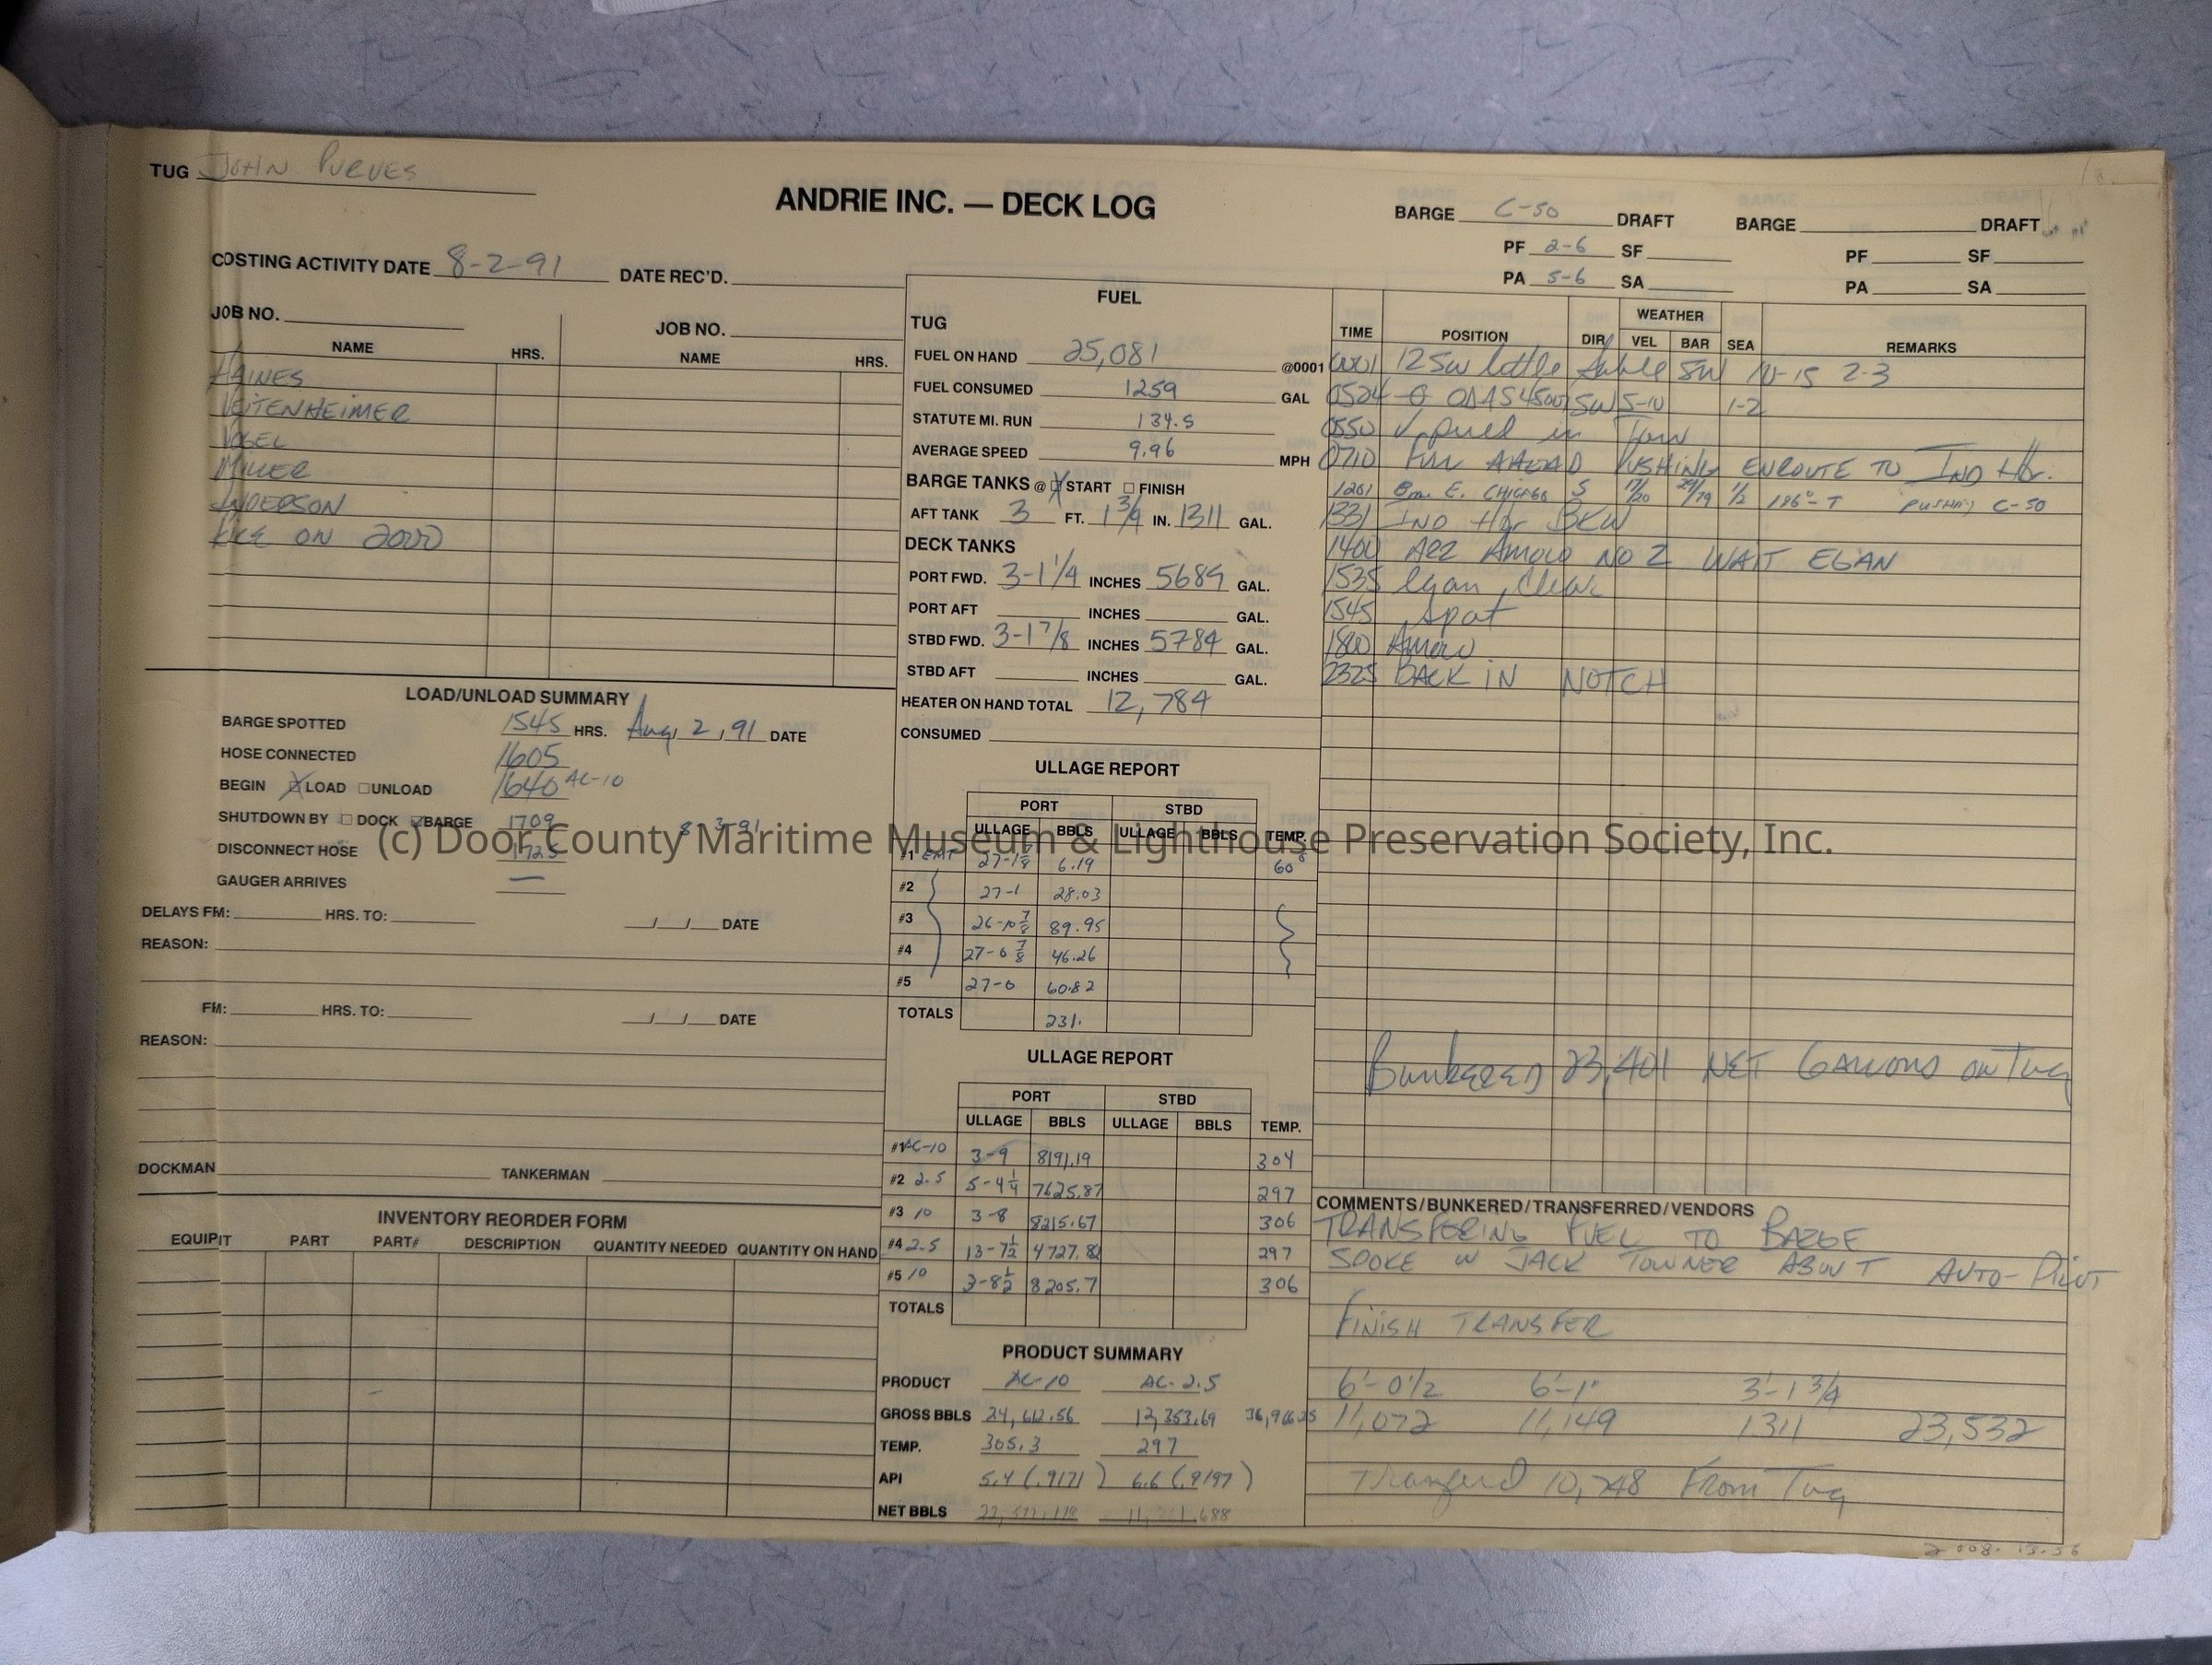 TUG JOHN PURVES
ANDRIE INC. — DECK LOG
BARGE C-50 DRAFT
PF 2-6 SF
PA 5-6 SA
BARGE DRAFT
PF SF
PA SA
COSTING ACTIVITY DATE 8-2-91 DATE REC'D.
JOB NO. JOB NO.
NAME HRS. NAME HRS.
HAINES
VEITENHEIMER
VOGEL
MILLER
ANDERSON
ON 2000
LOAD/UNLOAD SUMMARY
BARGE SPOTTED 1545 HRS. Aug, 2, 91 DATE
HOSE CONNECTED 1605
BEGIN LOAD UNLOAD 1640 AC-10
SHUTDOWN BY DOCK BARGE 1709 8-3-91
DISCONNECT HOSE 1725
GAUGER ARRIVES —
DELAYS FM: HRS. TO: / / DATE
REASON:
FM: HRS. TO: / / DATE
REASON:
DOCKMAN TANKERMAN
INVENTORY REORDER FORM
EQUIP'T PART PART# DESCRIPTION QUANTITY NEEDED QUANTITY ON HAND
FUEL
TUG
FUEL ON HAND 25,081 @0001
FUEL CONSUMED 1259 GAL
STATUTE MI. RUN 134.5
AVERAGE SPEED 9.96 MPH
BARGE TANKS @ START FINISH
AFT TANK 3 FT. 1 3/4 IN. 1311 GAL.
DECK TANKS
PORT FWD. 3-1 1/4 INCHES 5689 GAL.
PORT AFT INCHES GAL.
STBD FWD. 3-1 7/8 INCHES 5784 GAL.
STBD AFT INCHES GAL.
HEATER ON HAND TOTAL 12,784
CONSUMED
ULLAGE REPORT
PORT STBD
ULLAGE BBLS ULLAGE BBLS TEMP.
#1 EMT 27-1 7/8 6.19 60°
#2 27-1 28.03
#3 26-10 7/8 89.95
#4 27-0 7/8 46.26
#5 27-0 60.82
TOTALS 231.
ULLAGE REPORT
PORT STBD
ULLAGE BBLS ULLAGE BBLS TEMP.
#1 AC-10 3-9 8191.19 304
#2 2.5 5-4 1/4 7625.87 297
#3 10 3-8 8215.67 306
#4 2.5 13-7 1/2 4727.82 297
#5 10 3-8 1/2 8205.7 306
TOTALS
PRODUCT SUMMARY
PRODUCT AC-10 AC-2.5
GROSS BBLS 24,612.56 12,353.69 36,966.25
TEMP. 305.3 297
API 5.4 (.9171) 6.6 (.9197)
NET BBLS
TIME POSITION DIR WEATHER VEL BAR SEA REMARKS
0001 12 SW Little Sable SW 10-15 2-3
0524 ODAS 45007 SW 5-10 1-2
0550 in Tow
0710 Full AHEAD PUSHING ENROUTE TO IND Hbr.
1201 8m. E. CHICAGO S 17/20 29/79 1/2 186°-T PUSHING C-50
1331 IND Hbr BKW
1400 ARR Amoco NO 2 WAIT EGAN
1535 Egan Clear
1545 Spot
1800 Amoco
2325 BACK IN NOTCH
BUNKERED 23,401 NET GALLONS ON Tug
COMMENTS/BUNKERED/TRANSFERRED/VENDORS
TRANSFERING FUEL TO BARGE
SPOKE W JACK TOWNER ABOUT AUTO-PILOT
FINISH TRANSFER
6'-0 1/2 6'-1" 3'-1 3/4
11,072 11,149 1311 23,532
Transferd 10,748 From Tug
2008.13.56
(c) Door County Maritime Museum & Lighthouse Preservation Society, Inc.